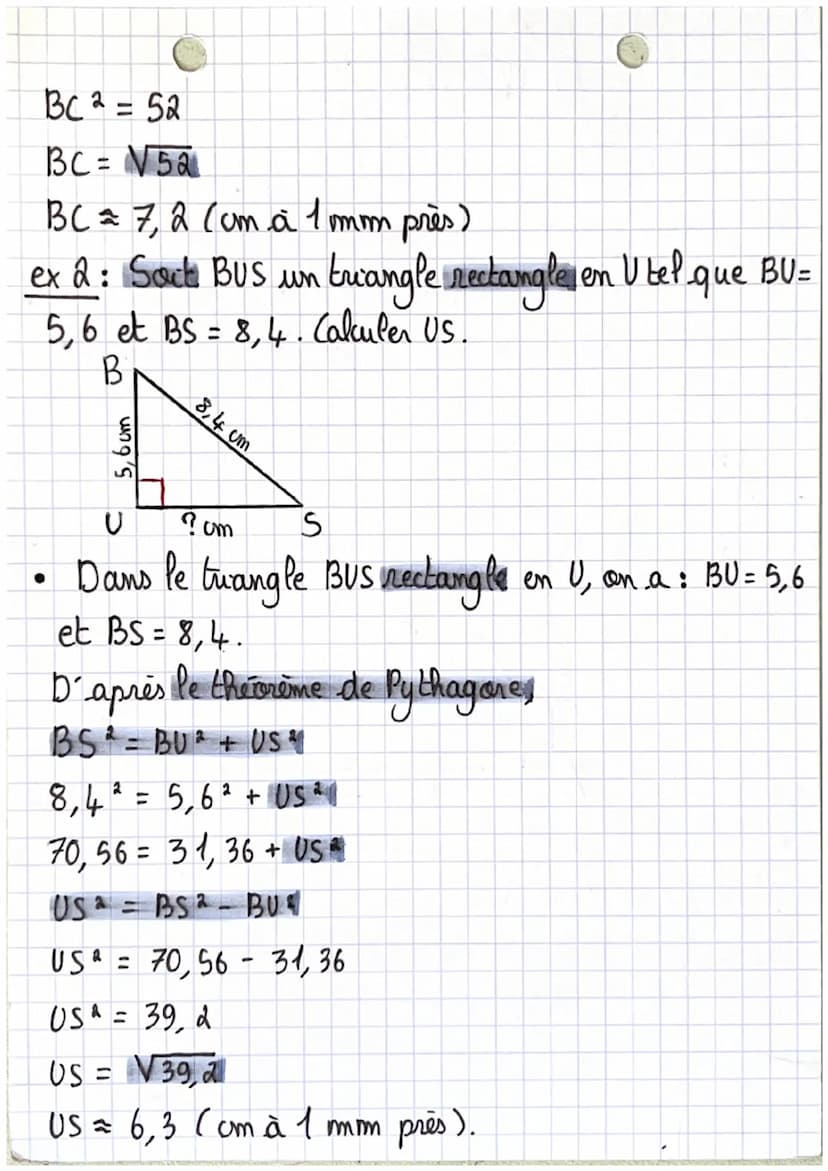 BC² = 52
BC = √52
BC ≈ 7,2 (cm à 1 mm près)
ex 2 : Soit BUS un triangle rectangle en U tel que BU =
5,6 et BS = 8,4. Calculer US.
B
8,4 cm
5,6 cm
U
? cm
S
• Dans le triangle BUS rectangle en U, on a : BU = 5,6
et BS = 8,4.
D'après le théorème de Pythagore,
BS² = BU² + US²
8,4² = 5,6² + US²
70,56 = 31,36 + US²
US² = BS² - BU²
US² = 70,56 - 31,36
US² = 39,2
US = √39,2
US ≈ 6,3 (cm à 1 mm près).